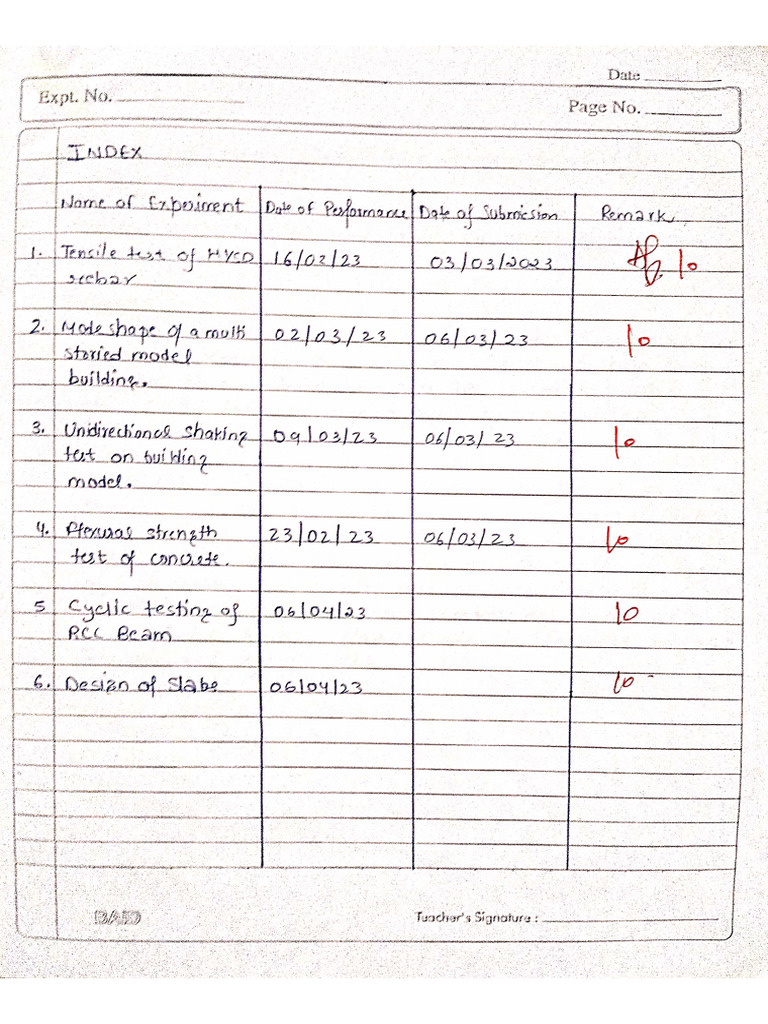 Date
Expt. No.
Page No.
INDEX
Name of Experiment Date of Performance Date of Submission Remark
1. Tensile test of HYSD 16/02/23 03/03/2023 10
rebar
2. Mode shape of a multi 02/03/23 06/03/23 10
storied model
building.
3. Unidirectional Shaking 09/03/23 06/03/23 10
test on building
model.
4. Flexural strength 23/02/23 06/03/23 10
test of concrete.
5 Cyclic testing of 06/04/23 10
RCC Beam
6. Design of Slabs 06/04/23 10
Teacher's Signature :